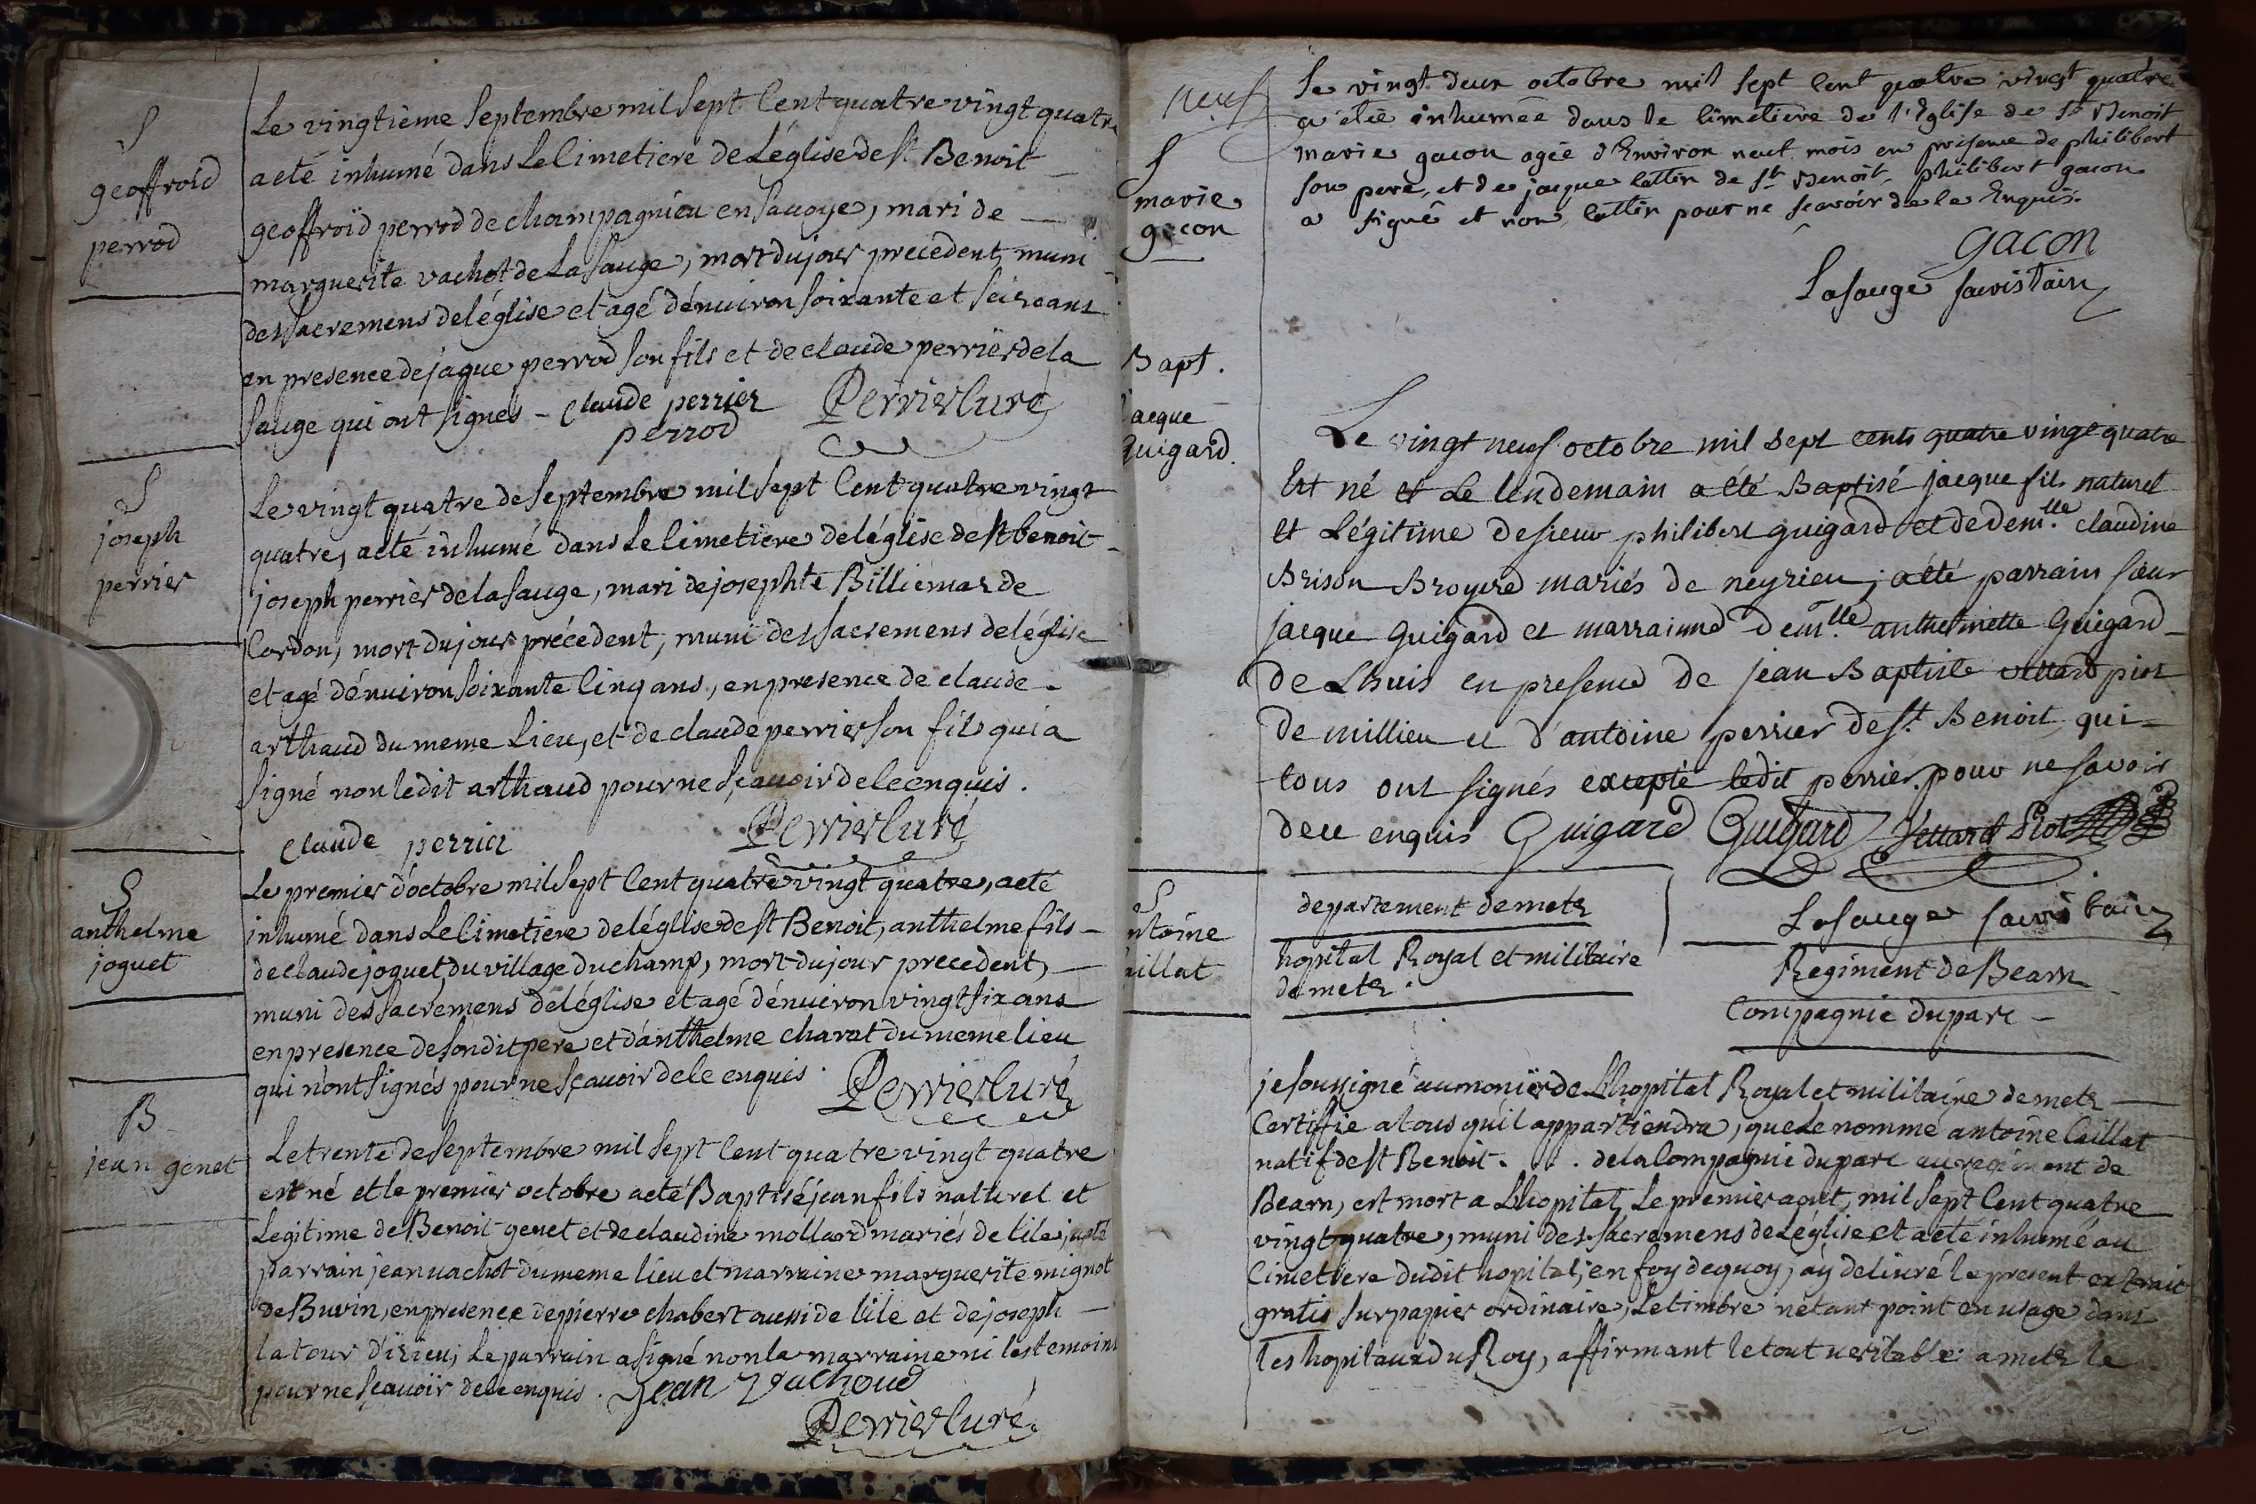 S
geoffroid
perrod
Le vingtieme Septembre mil Sept Cent quatre vingt quatre
a eté inhumé dans Le Cimetiere de Léglise de St Benoit
geoffroïd perrod de champagnieu en Savoye, mari de
marguerite vachot de La Sauge, mort du jour precedent, muni
des Sacremens de léglise et agé d'énviron Soixante et Seize ans
en presence de jaque perrod Son fils et de claude perrier de la
Sauge qui ont Signés - claude perrier Perrier Curé
perrod
S
joseph
perrier
Le vingt quatre de Septembre mil Sept Cent quatre vingt
quatre, a eté inhumé dans Le Cimetiere de léglise de St benoit
joseph perrier de la Sauge, mari de josephte Billiemaz de
Cordon, mort du jour précedent, muni des Sacremens de léglise
et agé d'énviron Soixante Cinq ans, en presence de claude
arthaud du meme Lieu, et de claude perrier Son fils qui a
Signé non ledit arthaud pour ne Sçavoir de ce enquis.
claude perrier Perrier Curé
S
anthelme
joguet
Le premier d'octobre mil Sept Cent quatre vingt quatre, a eté
inhumé dans Le Cimetiere de léglise de St Benoit, anthelme fils
de claude joguet du village du champ, mort du jour precedent,
muni des Sacremens de léglise et agé d'énviron vingt Six ans
en presence de Son dit pere et d'anthelme charat du meme lieu
qui n'ont Signés pour ne Sçavoir de ce enquis. Perrier Curé
B
jean genet
Le trente de Septembre mil Sept Cent quatre vingt quatre
est né et le premier octobre a eté Baptisé jean fils naturel et
Legitime de Benoit genet et de claudine mollard mariés de lile; a eté
parrain jean vachot du meme lieu et marraine marguerite mignot
de Buvin, en presence de pierre chabert aussi de lile et de joseph
latour d'izieu; Le parrain a Signé non la marraine ni les temoins
pour ne Sçavoir de ce enquis. Jean Vachoud
Perrier Curé
neuf
S
marie
gacon
Le vingt deux octobre mil Sept Cent quatre vingt quatre
a étée inhumée dans le Cimetiere de l'Eglise de St Benoit
marie gacon agée d'Environ neuf mois en présence de philibert
Son pere, et de jacque Cottin de St Benoit, philibert gacon
a Signé et non Cottin pour ne Scavoir de ce Enquis.
gacon
Lasauge Sacristain
Bapt.
jacque
Guigard.
Le vingt neuf octobre mil sept cents quatre vingt quatre
Est né et Le Lendemain a été Baptisé jacque fils naturel
et Légitime de Sieur philibert guigard et de demlle claudine
Brison Broyere mariés de neyrieu; a été parrain Sieur
jacque Guigard et marrainne demlle anthelmette Guigard
de Lhuis en presence de jean Baptiste vettard piot
de millieu et d'antoine perrier de St. Benoit qui
tous ont Signés excepté ledit perrier pour ne Savoir
de ce enquis Guigard Guigard Vettard Piot
Lasauge Sacristain
S
antoine
Caillat
departement de metz
hopital Royal et militaire
de metz.
Regiment de Bearn
Compagnie duparc
je Soussigné aumonier de Lhopital Royal et militaire de metz
Certiffie a tous qu'il appartiendra, que Le nommé antoine Caillat
natif de St Benoit . . . de la Compagnie duparc au regiment de
Bearn, est mort a Lhopital Le premier aout, mil Sept Cent quatre
vingt quatre, muni des Sacremens de Léglise et a eté inhumé au
Cimetiere dudit hopital; en foy de quoy, j'ay delivré le present extrait
gratis Sur papier ordinaire, Le timbre n'etant point en usage dans
les hopitaux du Roy, affirmant le tout veritable. a metz le